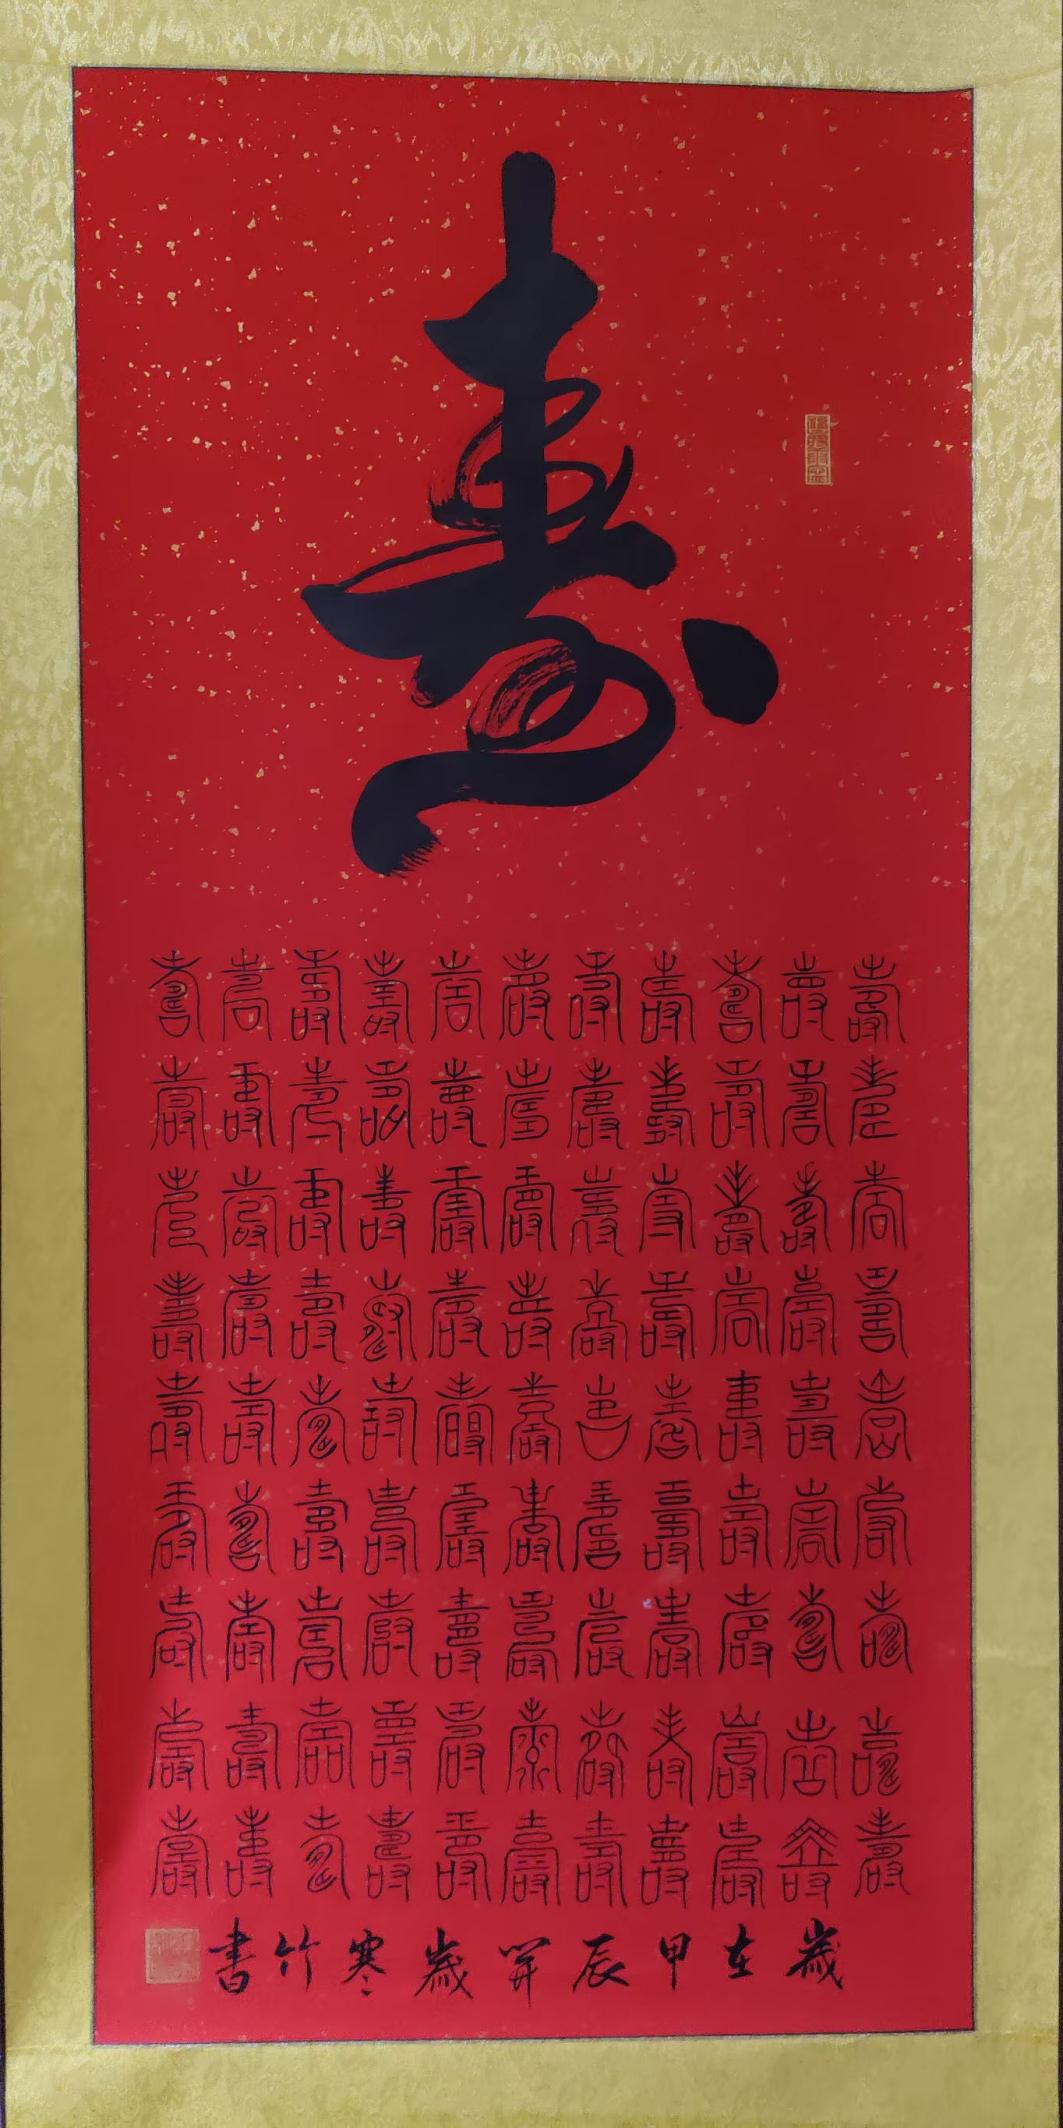 壽
壽壽壽壽壽壽壽壽壽壽壽
壽壽壽壽壽壽壽壽壽壽壽
壽壽壽壽壽壽壽壽壽壽壽
壽壽壽壽壽壽壽壽壽壽壽
壽壽壽壽壽壽壽壽壽壽壽
壽壽壽壽壽壽壽壽壽壽壽
壽壽壽壽壽壽壽壽壽壽壽
壽壽壽壽壽壽壽壽壽壽壽
壽壽壽壽壽壽壽壽壽壽壽
歲在甲辰開歲寒竹書